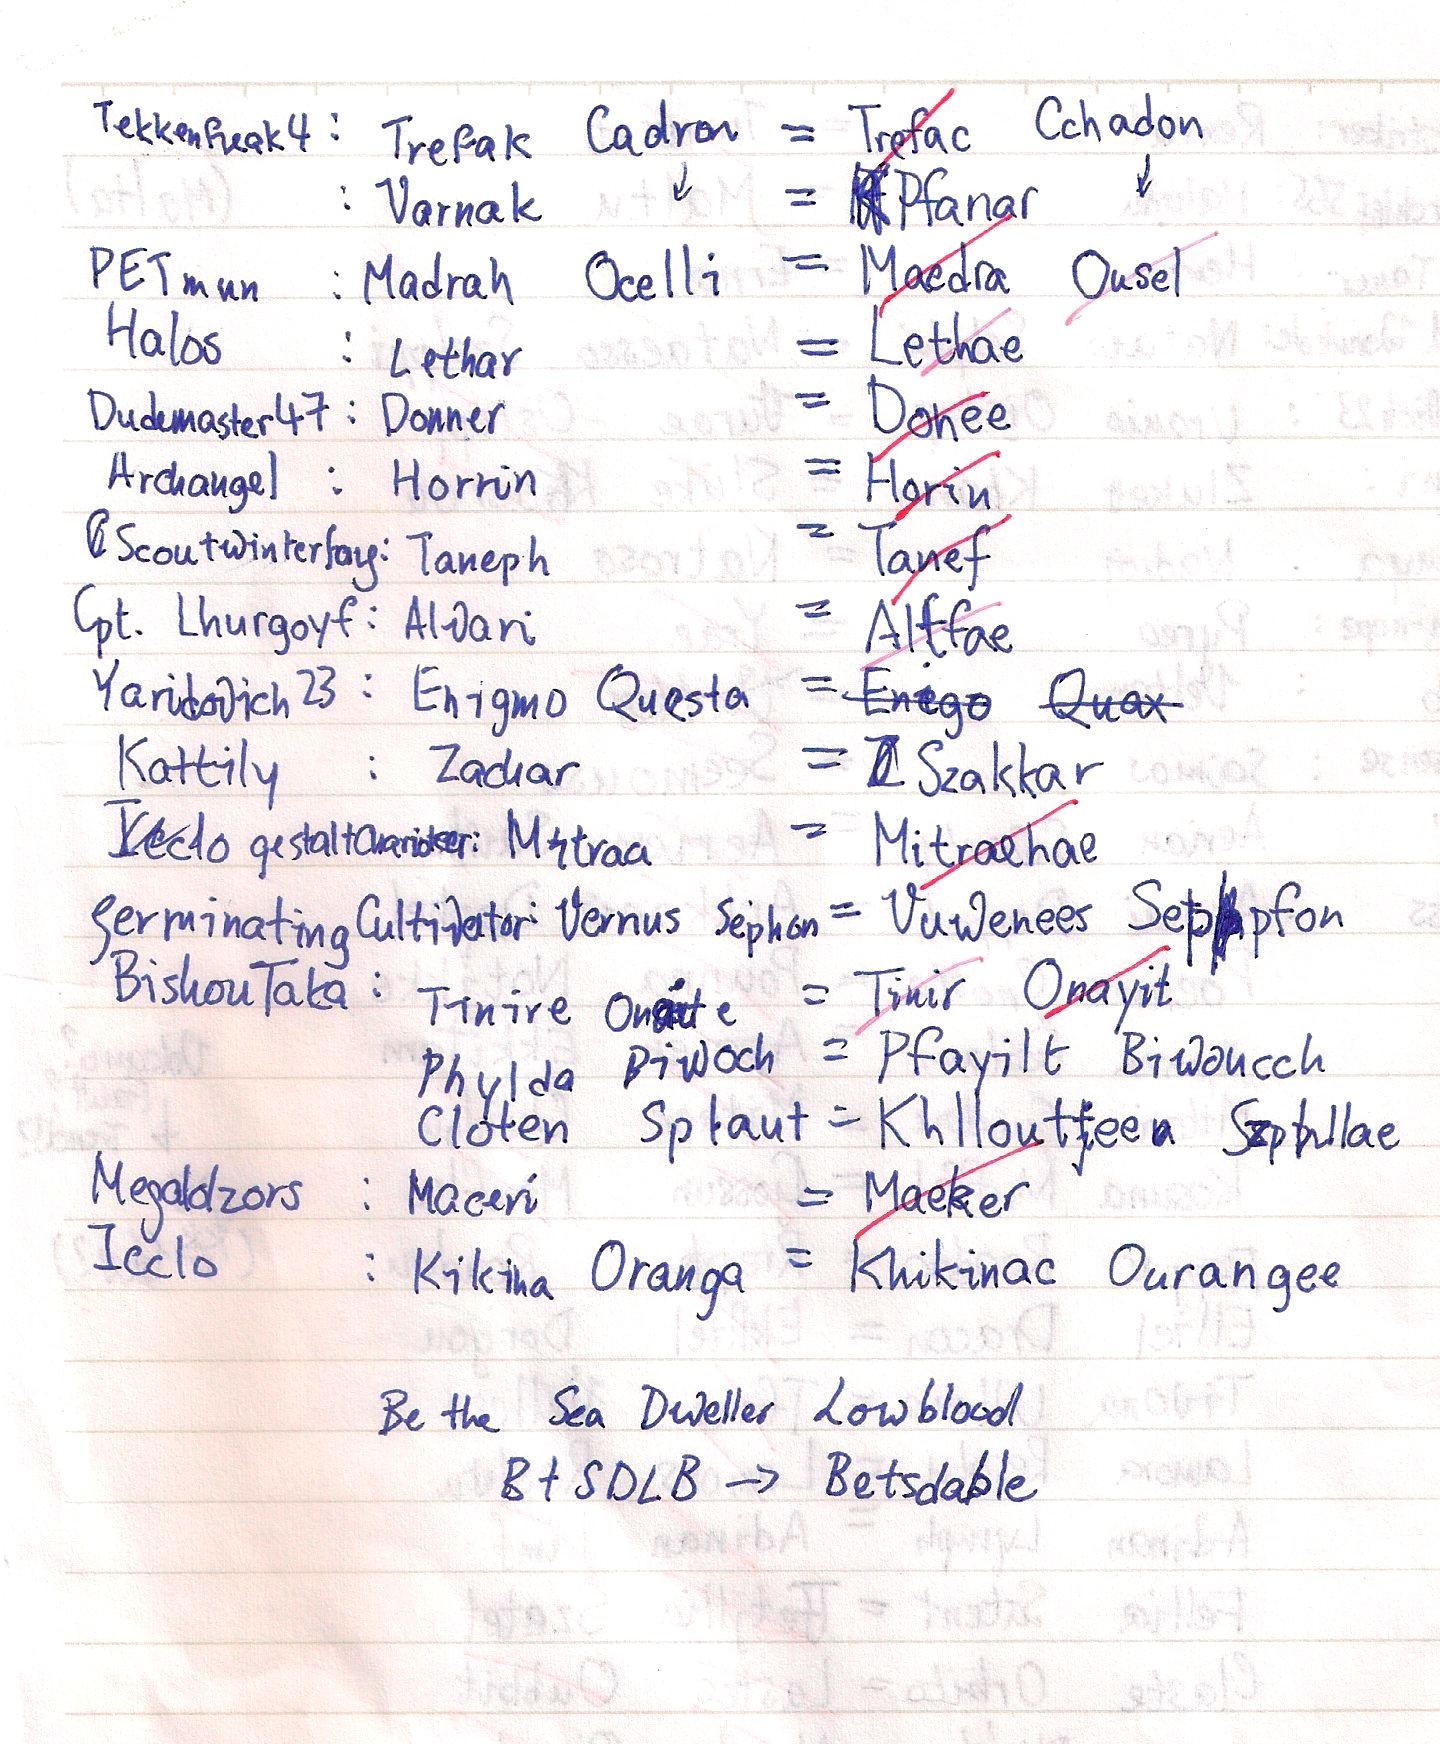 Tekkenfreak4 : Trefak Cadron = Trefac Cchadon
: Varnak ↓ = Pfanar ↓
PETmun : Madrah Ocelli = Maedra Ousel
Halos : Lethar = Lethae
Dudemaster47 : Donner = Donee
Archangel : Horrin = Horin
Scoutwinterfay: Taneph = Tanef
Cpt. Lhurgoyf: Alvari = Alffae
Yaridovich23 : Enigmo Questa = Enigo Quax
Kattily : Zachar = Szakkar
Icclo gestaltCharioteer: Mytraa = Mitraehae
germinating Cultivator: Vernus Sephon = Vuwenees Seppfon
BishouTaka : Tinire Onaite = Tinir Onayit
Phylda Biwoch = Pfayilt Biwoucch
Cloten Splaut = Khlloutjeen
Megaldzors : Maceri = Maeker
Icclo : Kikina Oranga = Khikinac Ourangee
Be the Sea Dweller Lowblood
BtSDLB -> Betsdable